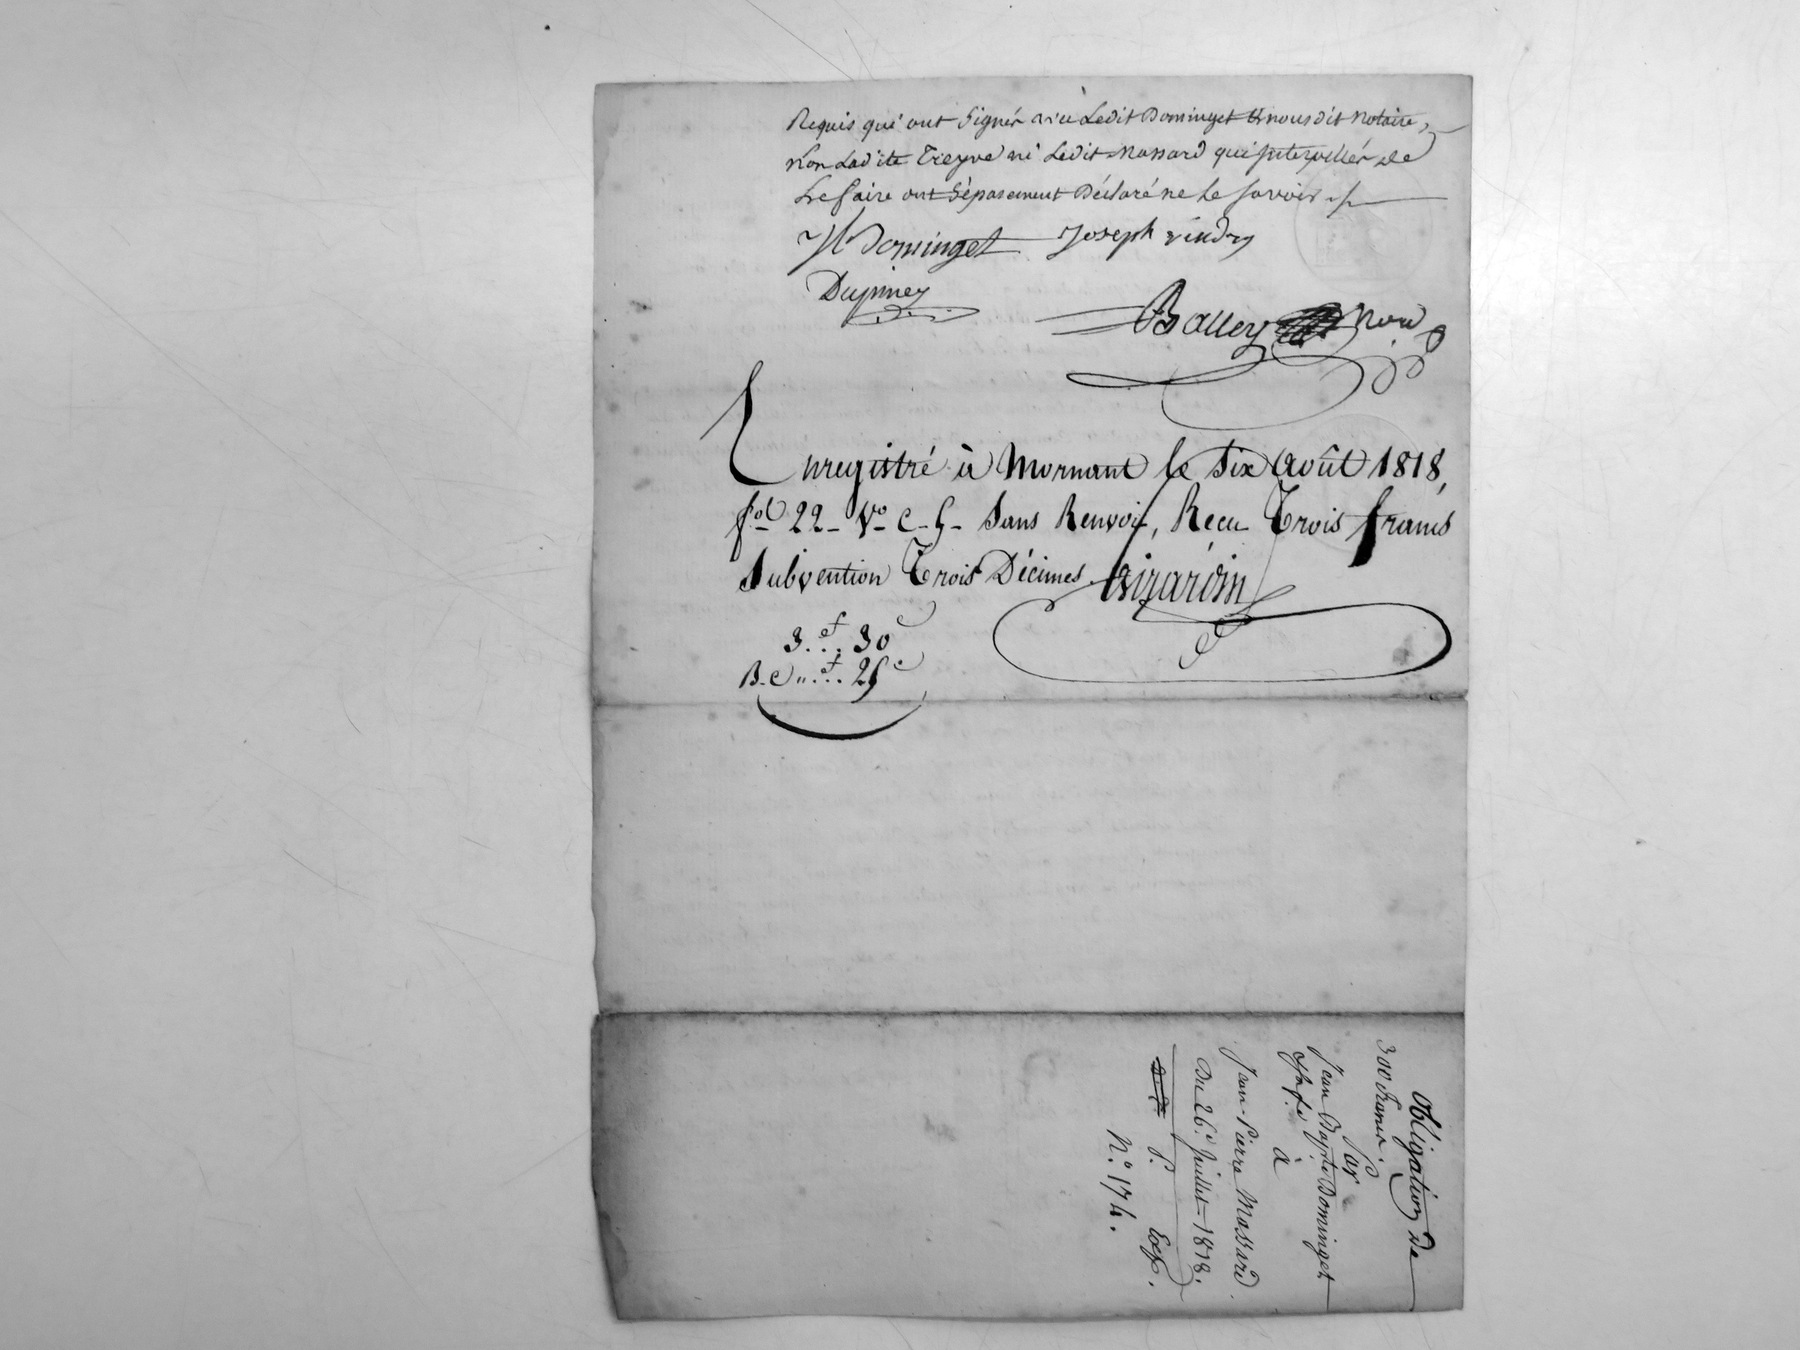 Requis qui ont Signér avec Ledit Dominget & nousdit Notaire,
Non Ladite Treyve ni Ledit Massard qui Interpellér de
Le faire ont Séparement Déclaré ne le Savoir ./.
Dominget Joseph vindry
Dupiney
Balley
Enregistré à Mornant le Six Août 1818,
fol 22 Vo C. 5 Sans Renvoi, Reçu Trois francs
Subvention Trois Décimes Girardin
3.f. 30c
B.C ".f. 25c
Obligation De
300 francs.
Par
Jean Bapte Dominget
à
Jean-Pierre Massard
Du 26 Juillet 1818.
N.° 174.